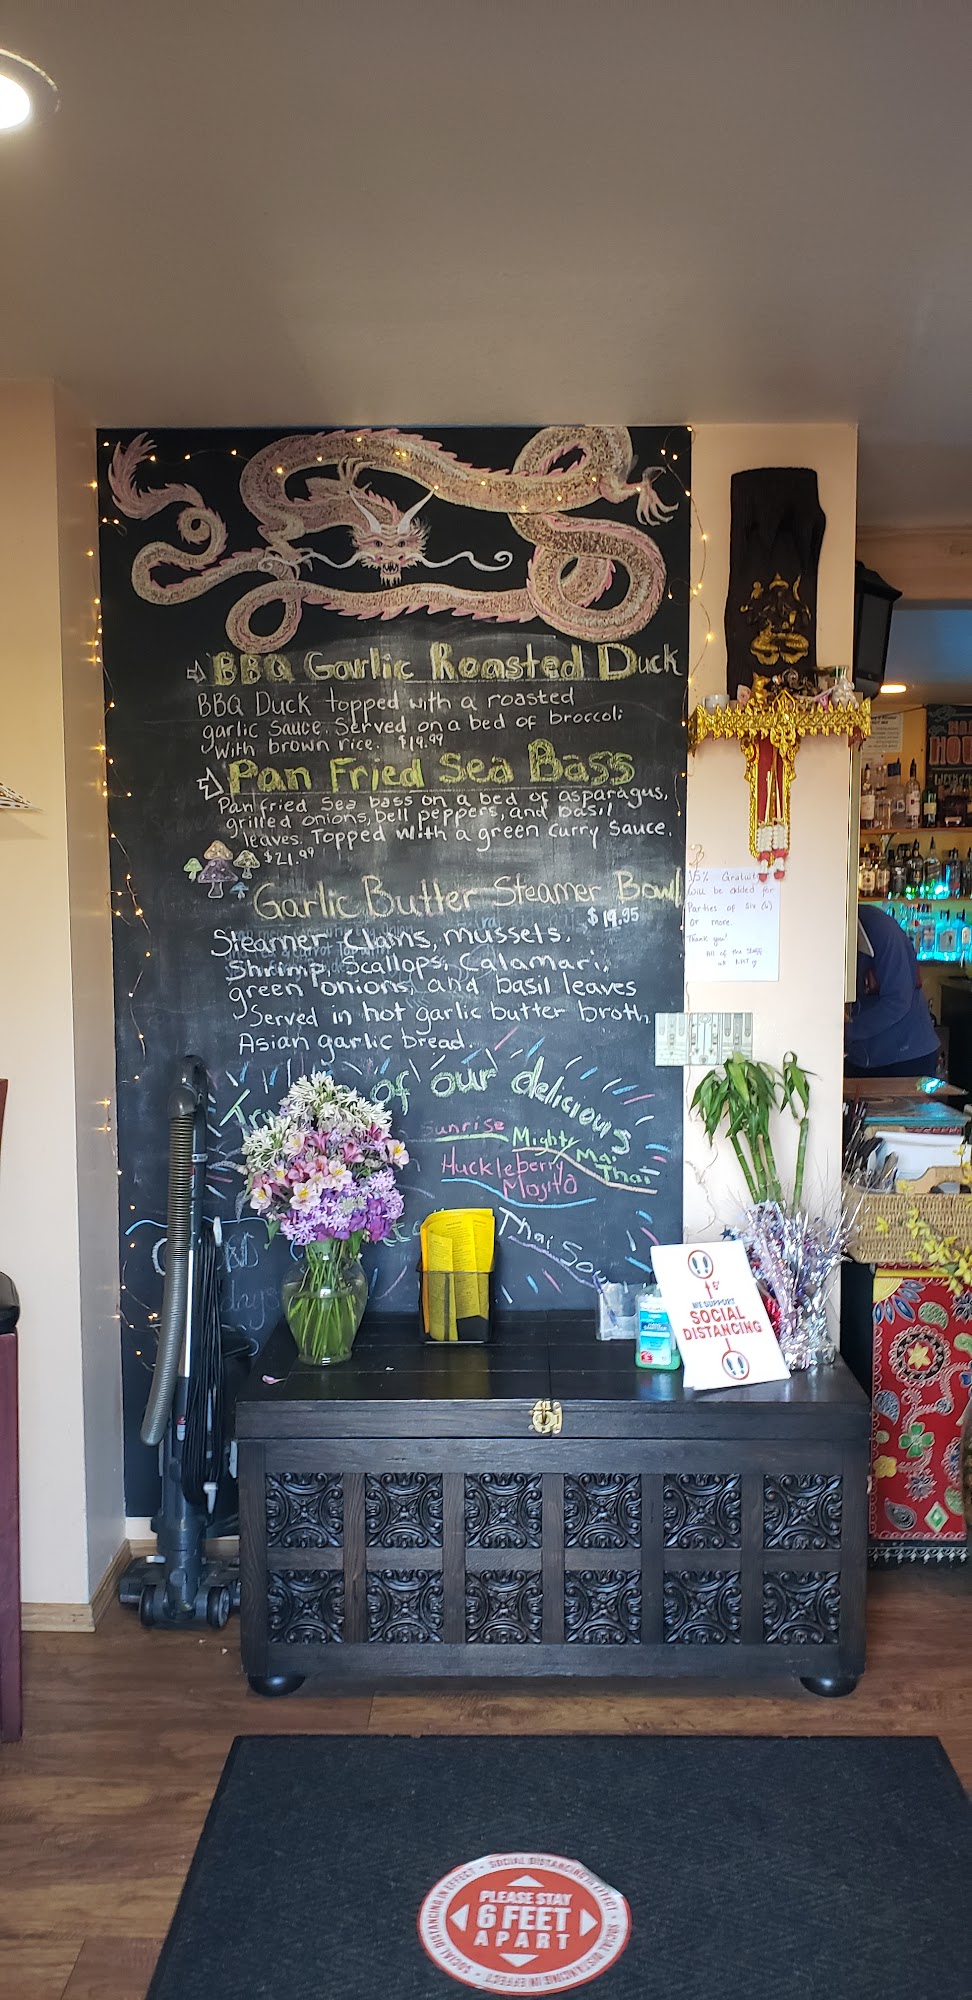 BBQ Garlic Roasted Duck
BBQ Duck topped with a roasted
garlic Sauce. Served on a bed of broccoli
with brown rice. $19.99
Pan Fried Sea Bass
Pan fried Sea bass on a bed of asparagus,
grilled onions, bell peppers, and basil
leaves. Topped with a green curry Sauce.
$21.99
Garlic Butter Steamer Bowl
$19.95
Steamer Clams, mussels,
Shrimp, Scallops, Calamari,
green onions, and basil leaves
Served in hot garlic butter broth,
Asian garlic bread.
of our delicious
Sunrise
Mighty Mai Thai
Huckleberry
Mojito
Thai
15% Gratuity
will be added for
Parties of Six (6)
or more.
Thank you!
All of the Staff
at
6'
WE SUPPORT
SOCIAL
DISTANCING
SOCIAL DISTANCING IN EFFECT • SOCIAL DISTANCING IN EFFECT • SOCIAL DISTANCING IN EFFECT
PLEASE STAY
6 FEET
APART